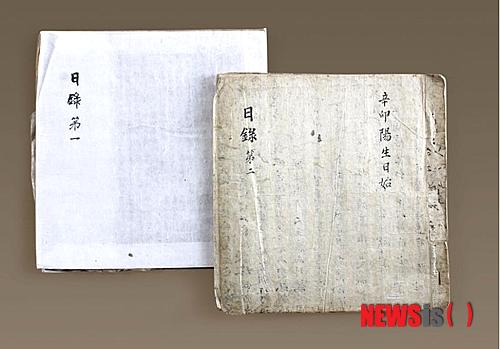 日錄 第一
辛卯陽生日始
日錄 第二
NEWSis( )